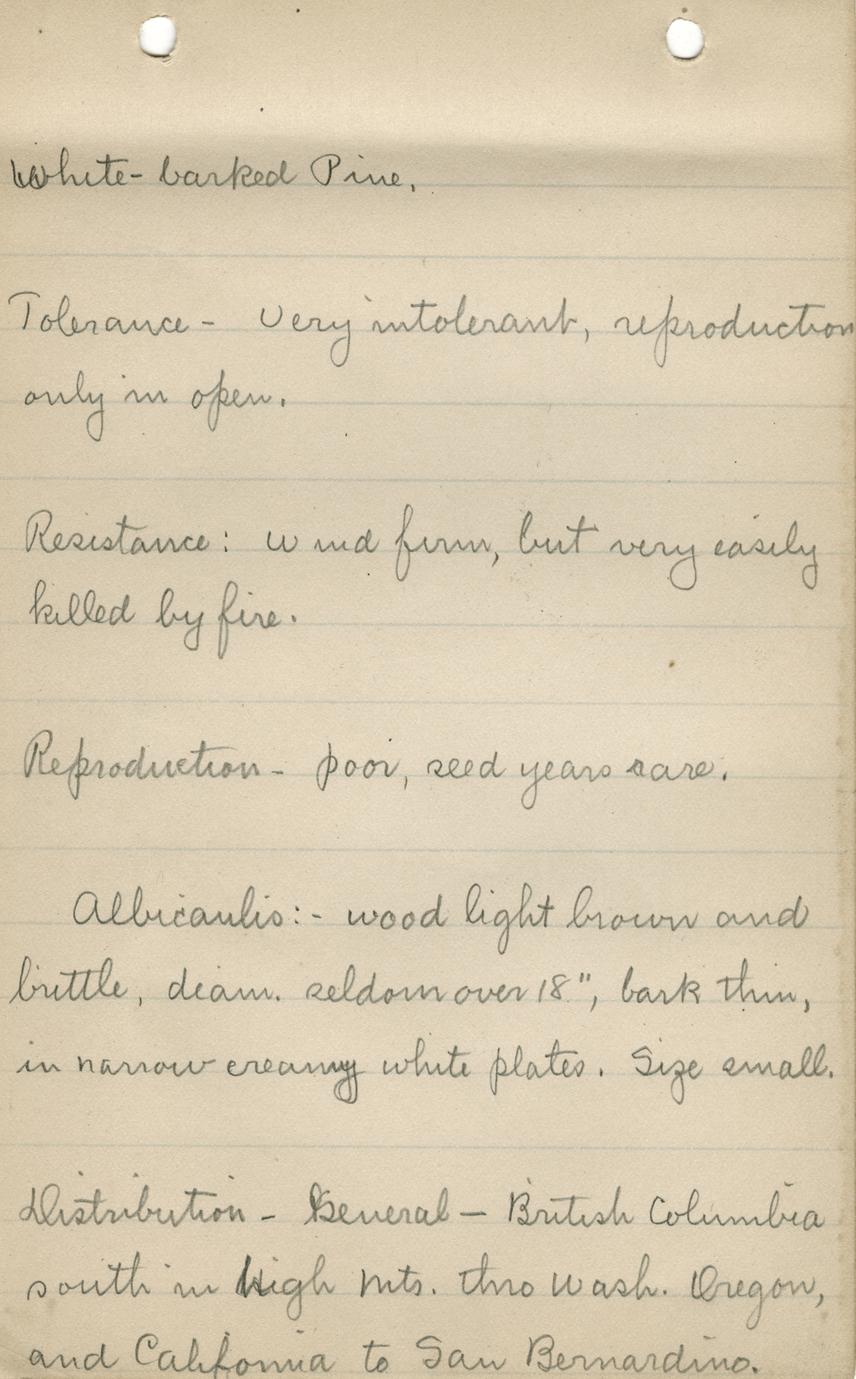 White-barked Pine.
Tolerance - Very intolerant, reproduction
only in open.
Resistance: Wind firm, but very easily
killed by fire.
Reproduction - poor, seed years rare.
Albicaulis:- wood light brown and
brittle, diam. seldom over 18", bark thin,
in narrow creamy white plates. Size small.
Distribution - General - British Columbia
south in High Mts. thro Wash. Oregon,
and California to San Bernardino.